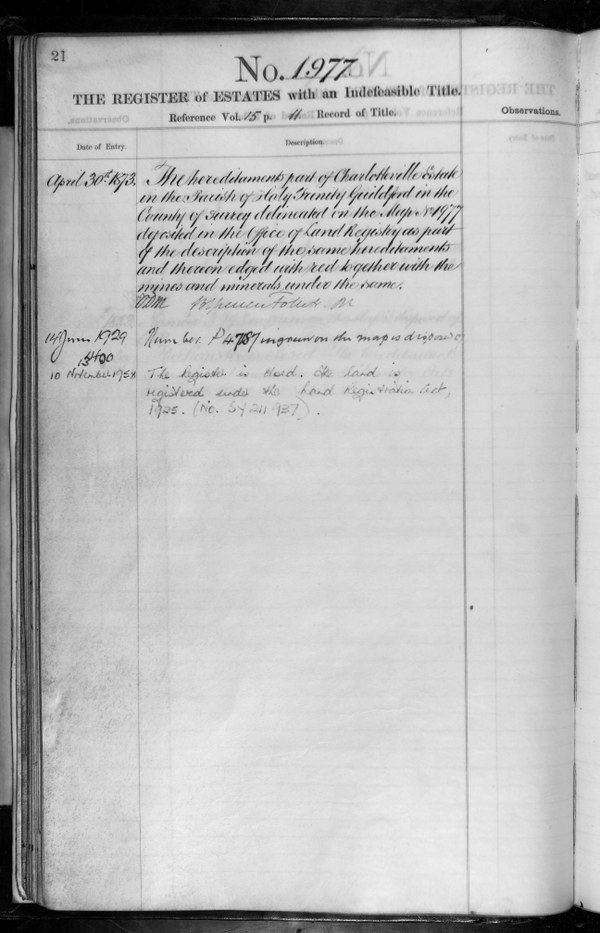 21
No. 1977
THE REGISTER of ESTATES with an Indefeasible Title.
Reference Vol. 15 p. 11 Record of Title.
Observations.
Date of Entry.
Description.
April 30th 1873. The hereditaments part of Charlotteville Estate
in the Parish of Holy Trinity Guildford in the
County of Surrey delineated on the Map No 1977
deposited in the Office of Land Registry as part
of the description of the same hereditaments
and thereon edged with red together with the
mines and minerals under the same.
14 June 1929 Number P4787 in green on the map is disposed of
10 November 1958 The Register is closed. The land is
registered under the Land Registration Act,
1925. (No. SY 211937).